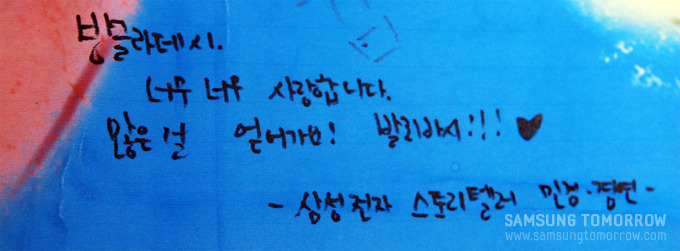 방글라데시.
너무 너무 사랑합니다.
많은 걸 얻어가요! 발리바시!!! ♥
- 삼성전자 스토리텔러 민정·정연 -
SAMSUNG TOMORROW
www.samsungtomorrow.com